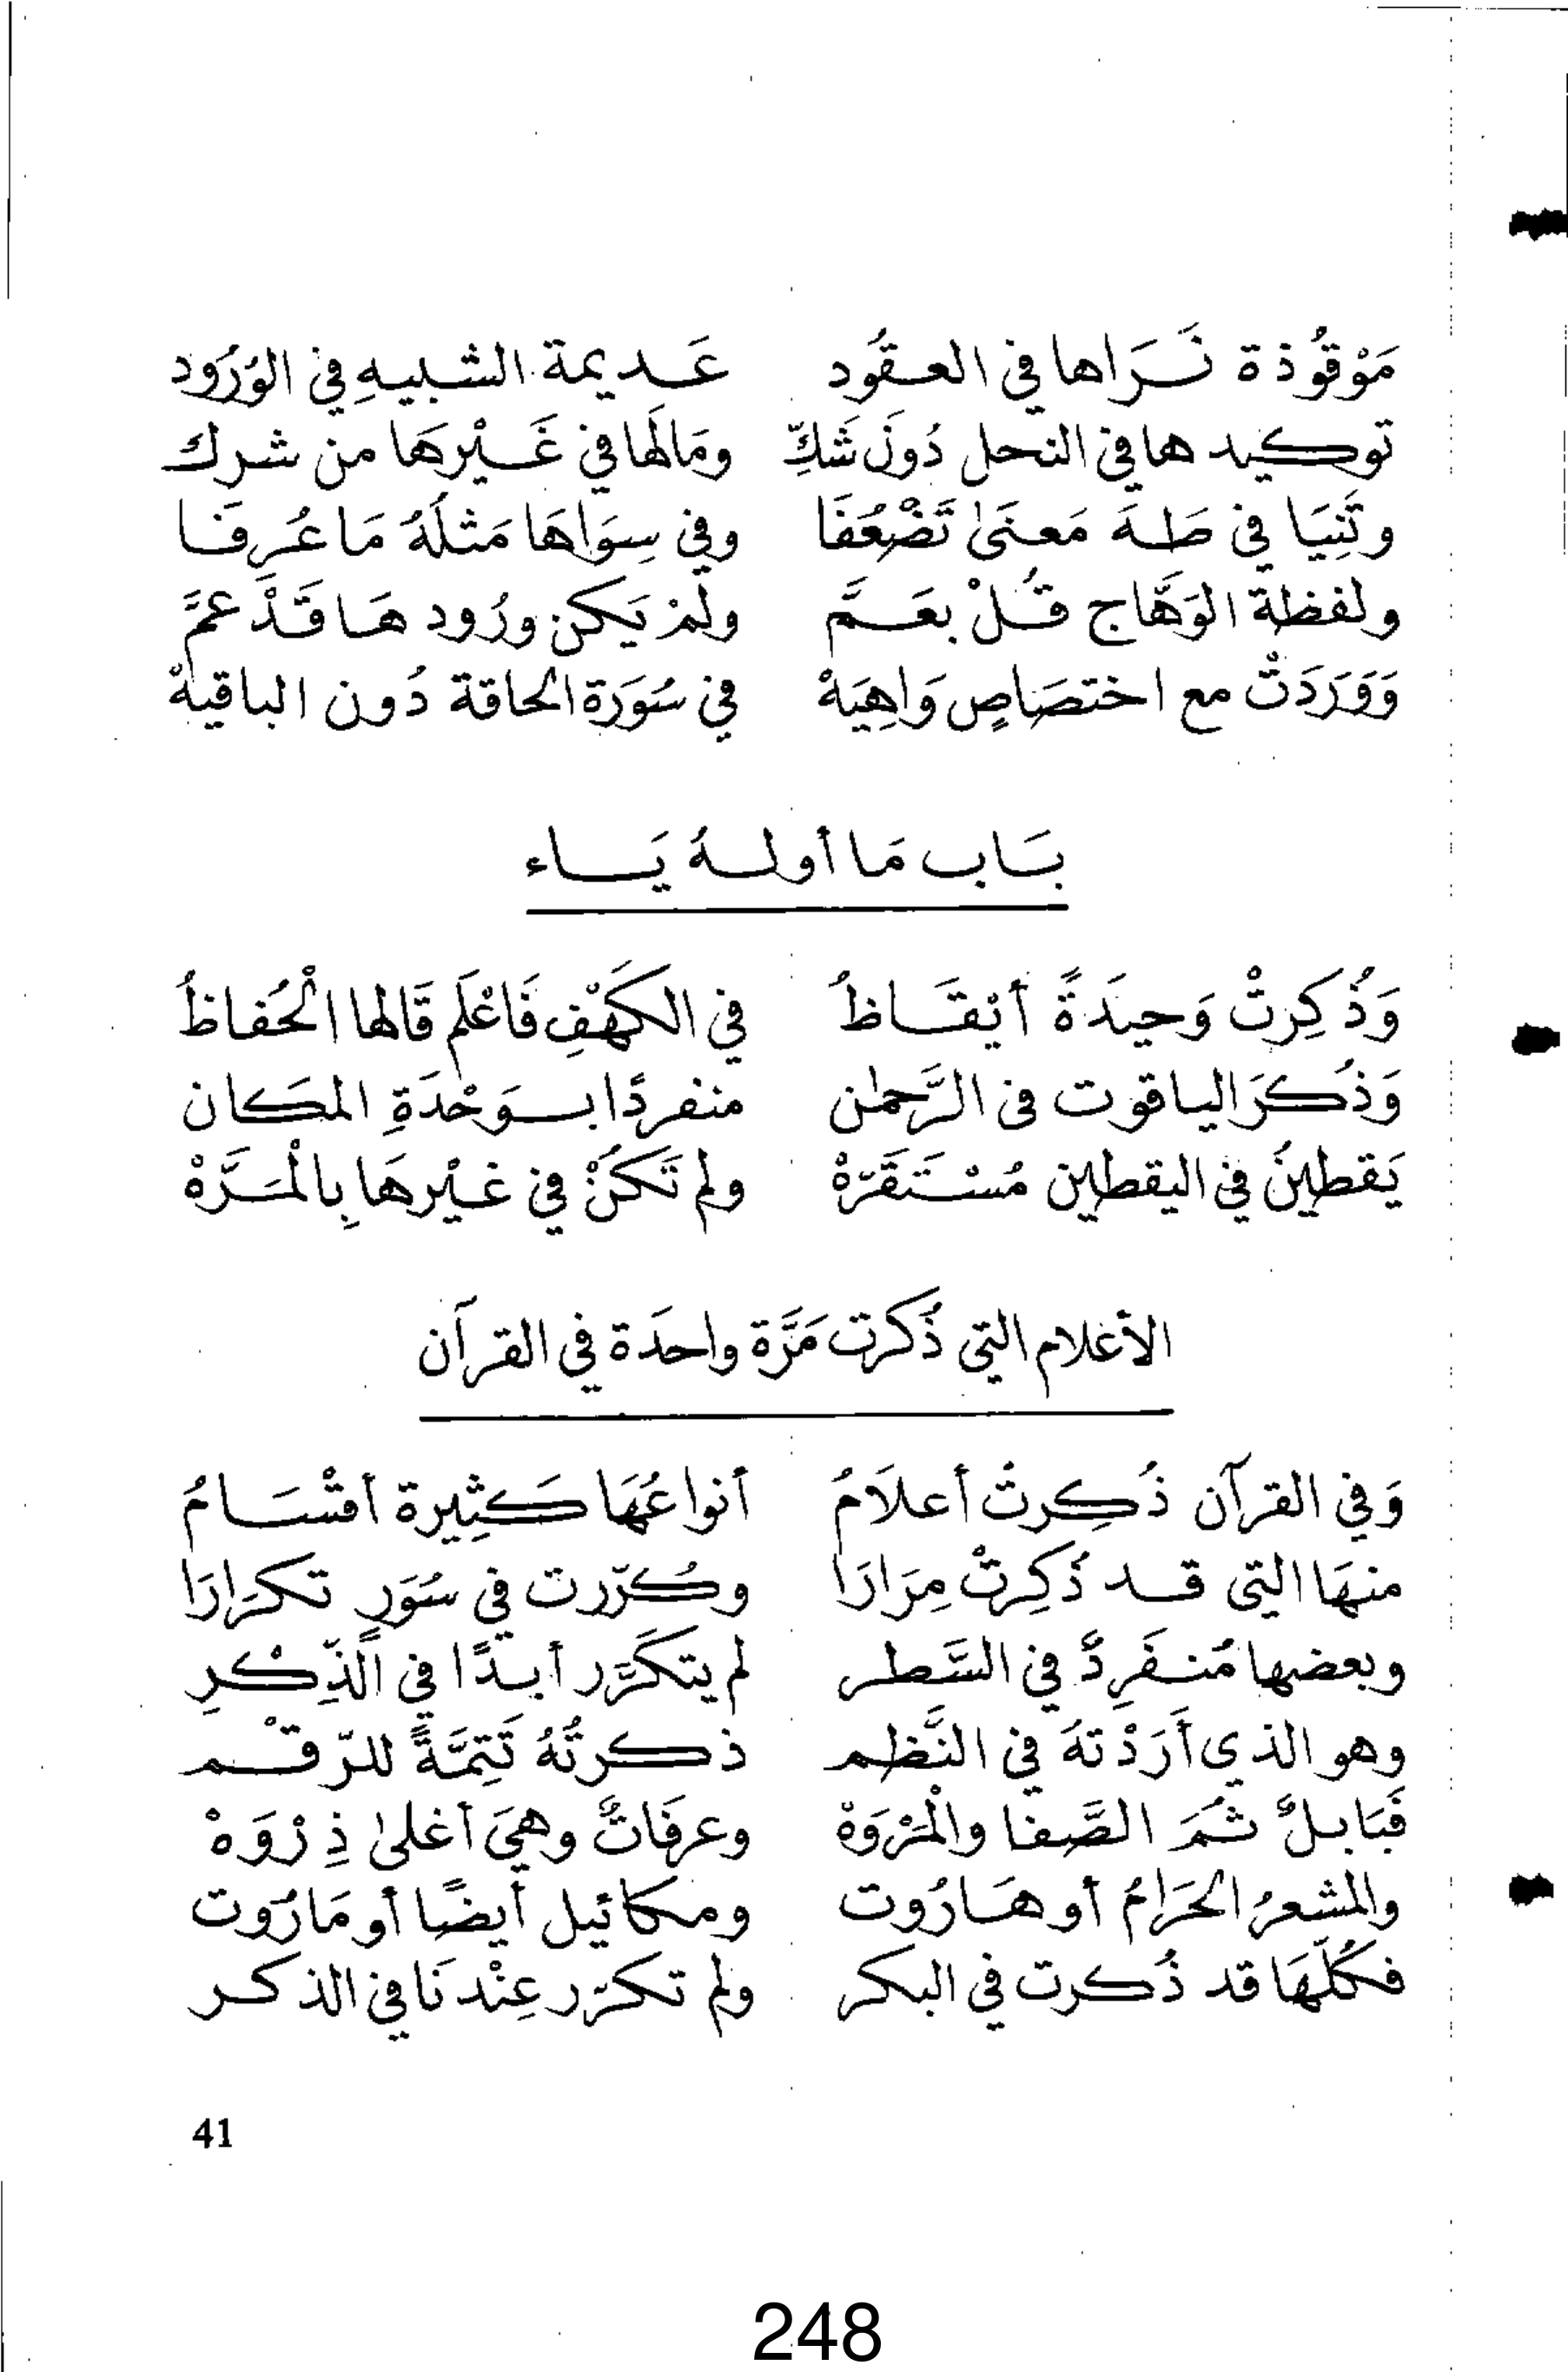 مَوْقُوذة نَرَاها في العقُود عَديمة الشبيهِ في الوُرُود
توكيدها في النحل دُونَ شَكِّ ومَالَها في غَيْرِهَا من شرك
وتَنِيَا في طَهَ مَعنَىٰ تَضْعُفَا وفي سِوَاهَا مَثلَهُ مَا عُرِفَا
ولفظة الوَهَّاج قُلْ بعَمَّ ولمْ يَكن ورُود هَا قَدْ عمَّ
وَوَرَدَتْ مع اختصَاصٍ وَاهِيَهْ في سُوَرَة الحاقة دُون الباقيهْ
بَاب مَا أولهُ يَاء
وَذُكِرتْ وَحيدَةً أيْقَاظُ في الكَهْفِ فَاعْلَم قَالها الْحُفاظُ
وَذُكرَ الياقوت في الرَّحمٰن منفردًا بوَحْدَةِ المكان
يَقطينُ في اليقطين مُسْتَقَرّهْ ولم تَكُنْ في غيْرهَا بِالْمَرَّهْ
الأعْلام التي ذُكرت مَرَّة واحدَة في القرآن
وَفي القرآن ذُكِرتْ أعلاَمُ أنواعُهَا كَثِيرة أقْسَامُ
منهَا التي قد ذُكِرتْ مِرَارَا وكُرّرت في سُوَرٍ تكرَارَا
وبعضها مُنفَرِدٌ في السَّطر لم يتكَرَّر أبدًا في الذِّكْرِ
وهو الذي أَرَدْتهَ في النَّظم ذكرتُهُ تَتِمَّةً للرّقْم
فَبَابلٌ ثمَ الصَّفا والْمَرْوَهْ وعرفَاتٌ وهيَ أعْلىٰ ذِرْوَهْ
والمشعرُ الحَرَامُ أو هَارُوت ومكائيل أيضًا أو مَارُوت
فكُلّهَا قد ذُكرت في البكر ولم تكرّر عِنْدنَا في الذكر
41
248